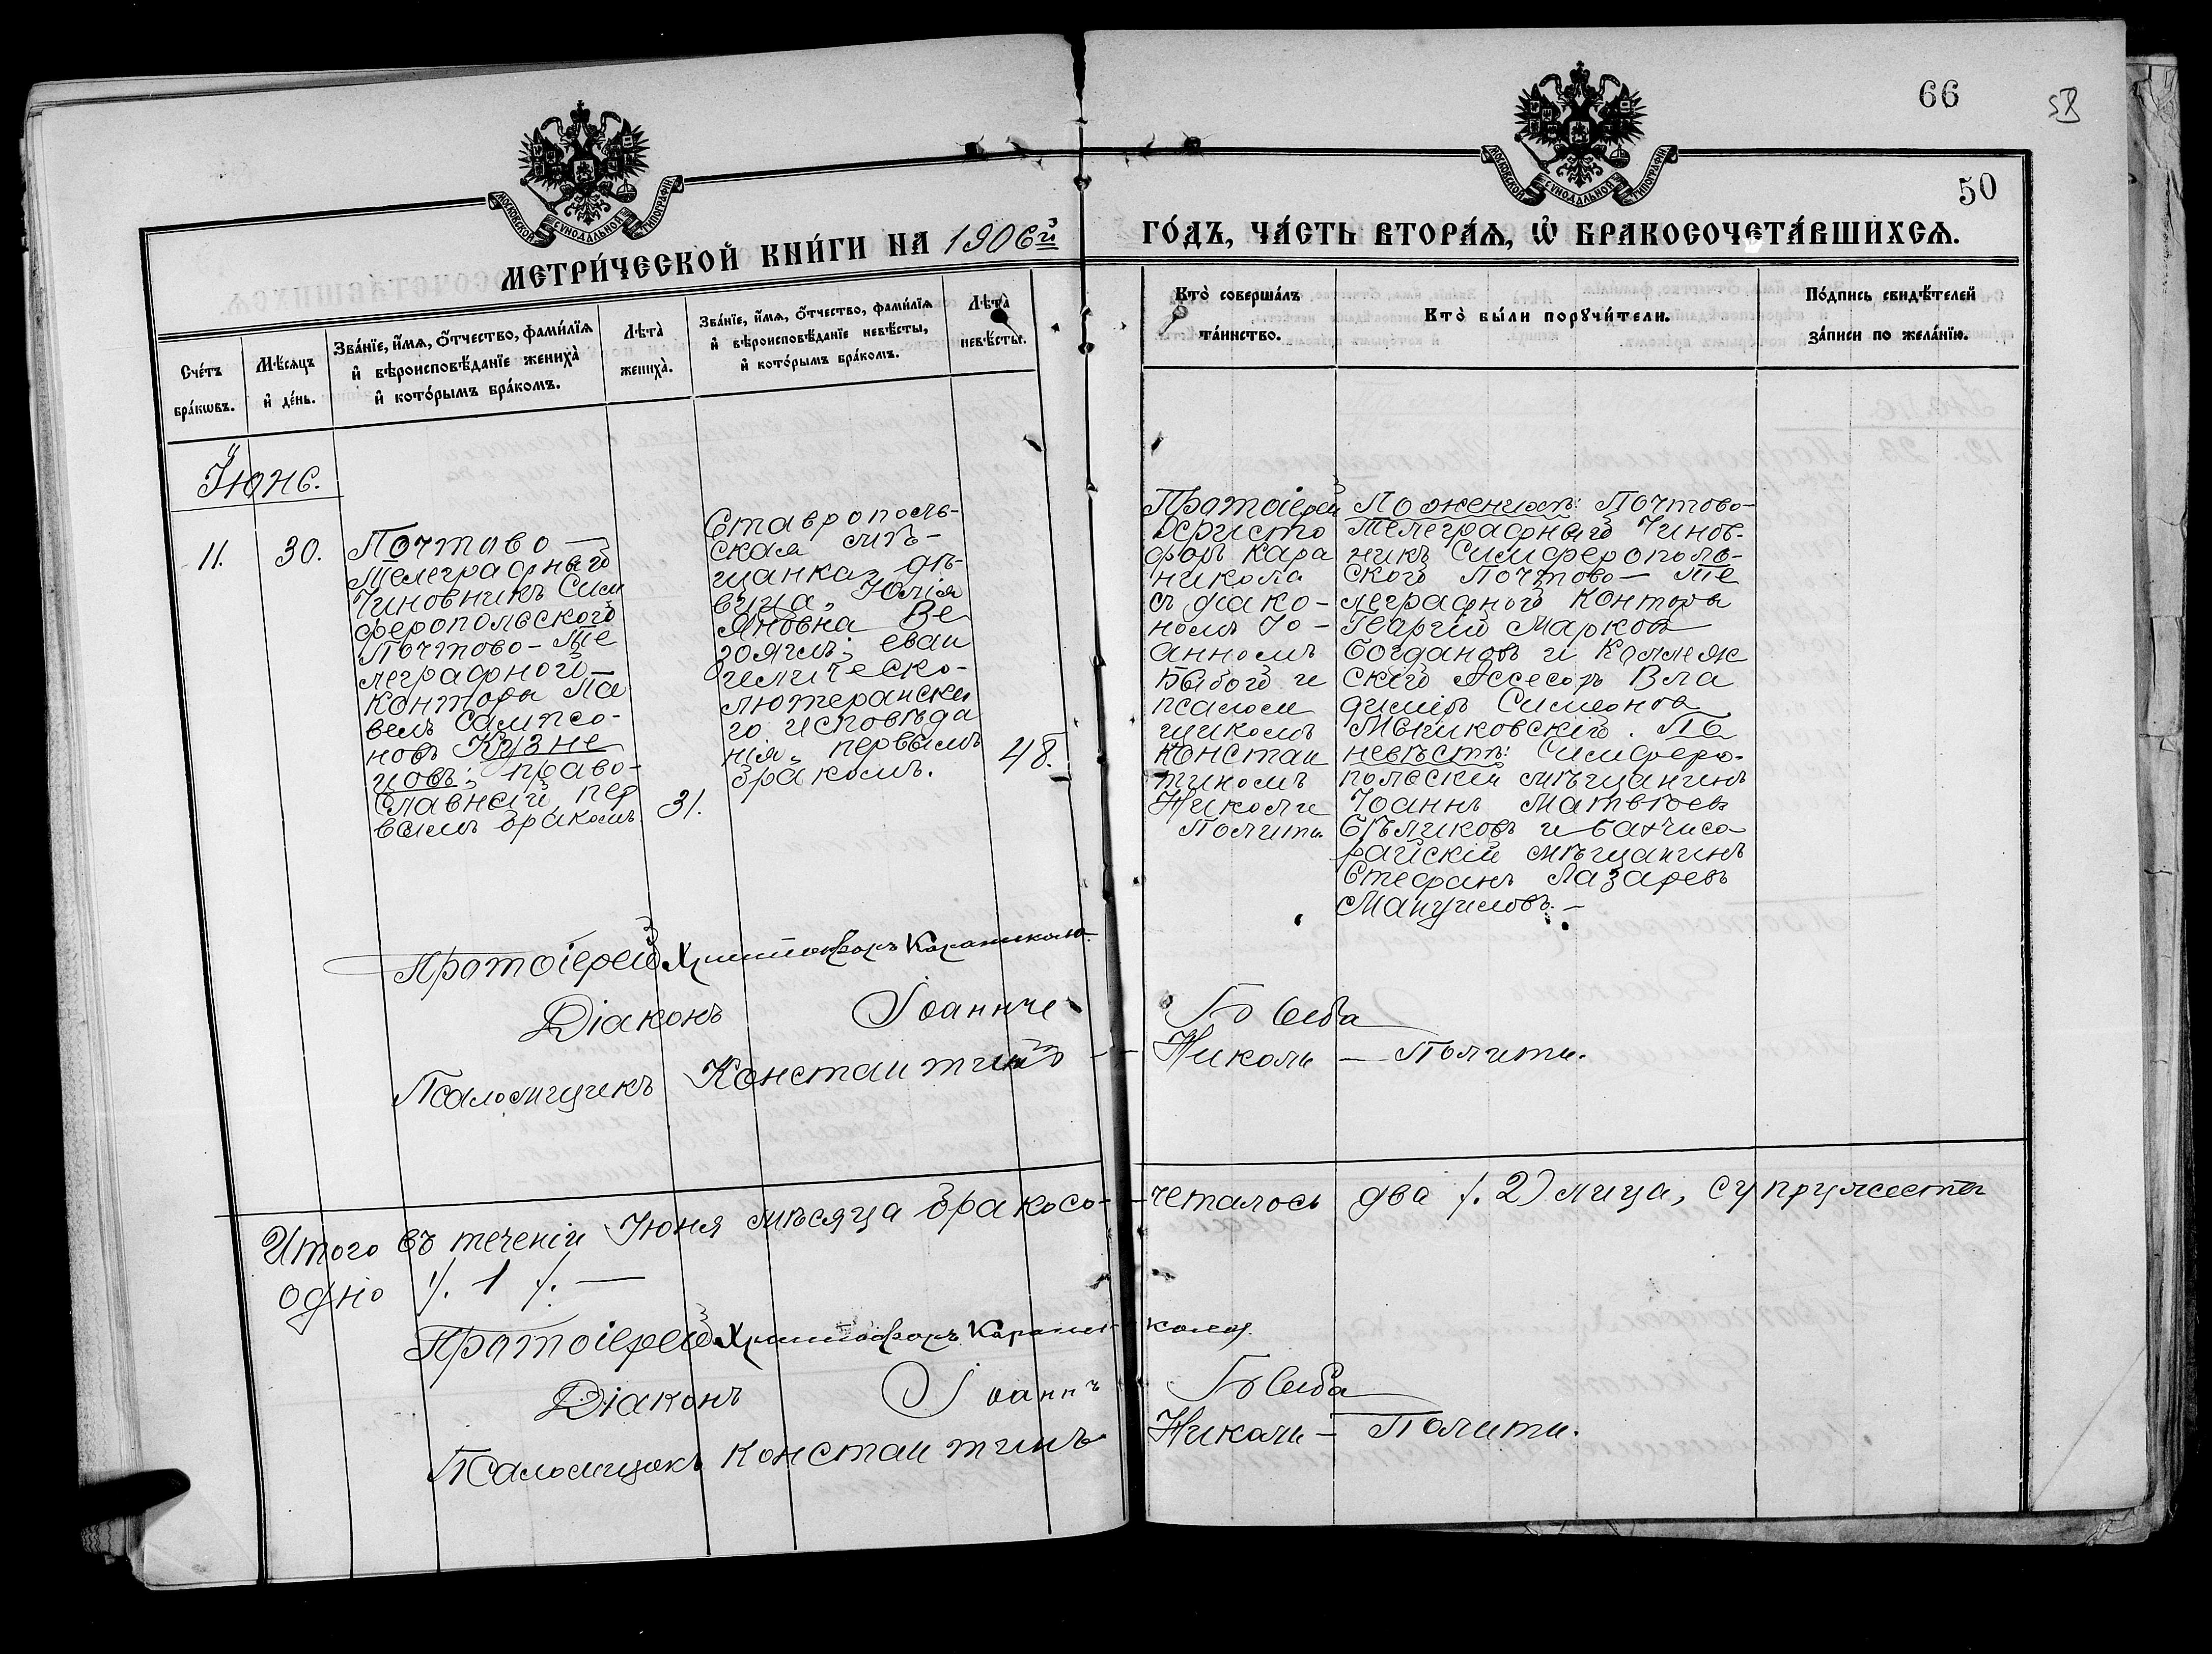 66
50
МОСКОВСКОЙ СУНОДАЛЬНОЙ ТИПОГРАФІИ
МОСКОВСКОЙ СУНОДАЛЬНОЙ ТИПОГРАФІИ
МЕТРИ́ЧЕСКОЙ КНИ́ГИ НА 1906й
ГО́ДЪ, ЧА́СТЬ ВТОРА́Ѧ, Ѡ БРАКОСОЧЕТА́ВШИХСѦ.
Сче́тъ
бра́кѡвъ.
Мѣ́сѧцъ
и҆ де́нь.
Зва́нїе, и҆́мѧ, ѻ҆́тчество, фами́лїѧ
и҆ вѣроисповѣ́данїе жениха̀
и҆ кото́рымъ бра́комъ.
Лѣ́та̀
жениха̀.
Зва́нїе, и҆́мѧ, ѻ҆́тчество, фами́лїѧ
и҆ вѣроисповѣ́данїе невѣ́сты,
и҆ кото́рымъ бра́комъ.
Лѣ́та̀
невѣ́сты.
Кто̀ соверша́лъ
та́инство.
Кто̀ бы́ли порꙋчи́тели.
По́дпись свидѣ́телей
за́писи по жела́нїю.
Іюнь.
11.
30.
Почтово-
Телеграфный
Чиновникъ Сим
феропольской
Почтово-Те
леграфной
Конторы Па
велъ Сампсо-
новъ Кузне
цовъ; право-
славный, пер
вымъ бракомъ
31.
Ставрополь-
ская мѣ-
щанка, дѣ-
вица, Юлія
Яновна Ве
еван
гелическо-
лютеранска
го исповѣда
нія, первымъ
бракомъ.
48.
Протоіерей
Христо
форъ Кара
никола
съ діако-
номъ Іо-
анномъ
и
псалом
щикомъ
Констан
тиномъ
Николи
Полити.
По женихѣ: Почтово-
телеграфный Чинов-
никъ Симферополь-
ской Почтово-Те
леграфной Конторы
Георгій Марковъ
Богдановъ и Коллеж
скій Ассесоръ Вла
диміръ Симеоновъ
По
невѣстѣ: Симферо-
польскій мѣщанинъ
Іоаннъ Матвѣевъ
Бѣликовъ и Бахчиса-
райскій мѣщанинъ
Стефанъ Лазаревъ
Мануиловъ.-
Протоіерей Христофоръ Караникола.
Діаконъ Іоаннъ
Псаломщикъ Константинъ Николи - Полити.
Итого въ теченіи Іюня мѣсяца бракосо-четалось два /.2) лица, супружество
одно /. 1 /. —
Протоіерей Христофоръ Караникола.
Діаконъ Іоаннъ
Псаломщикъ Константинъ Николи - Полити.